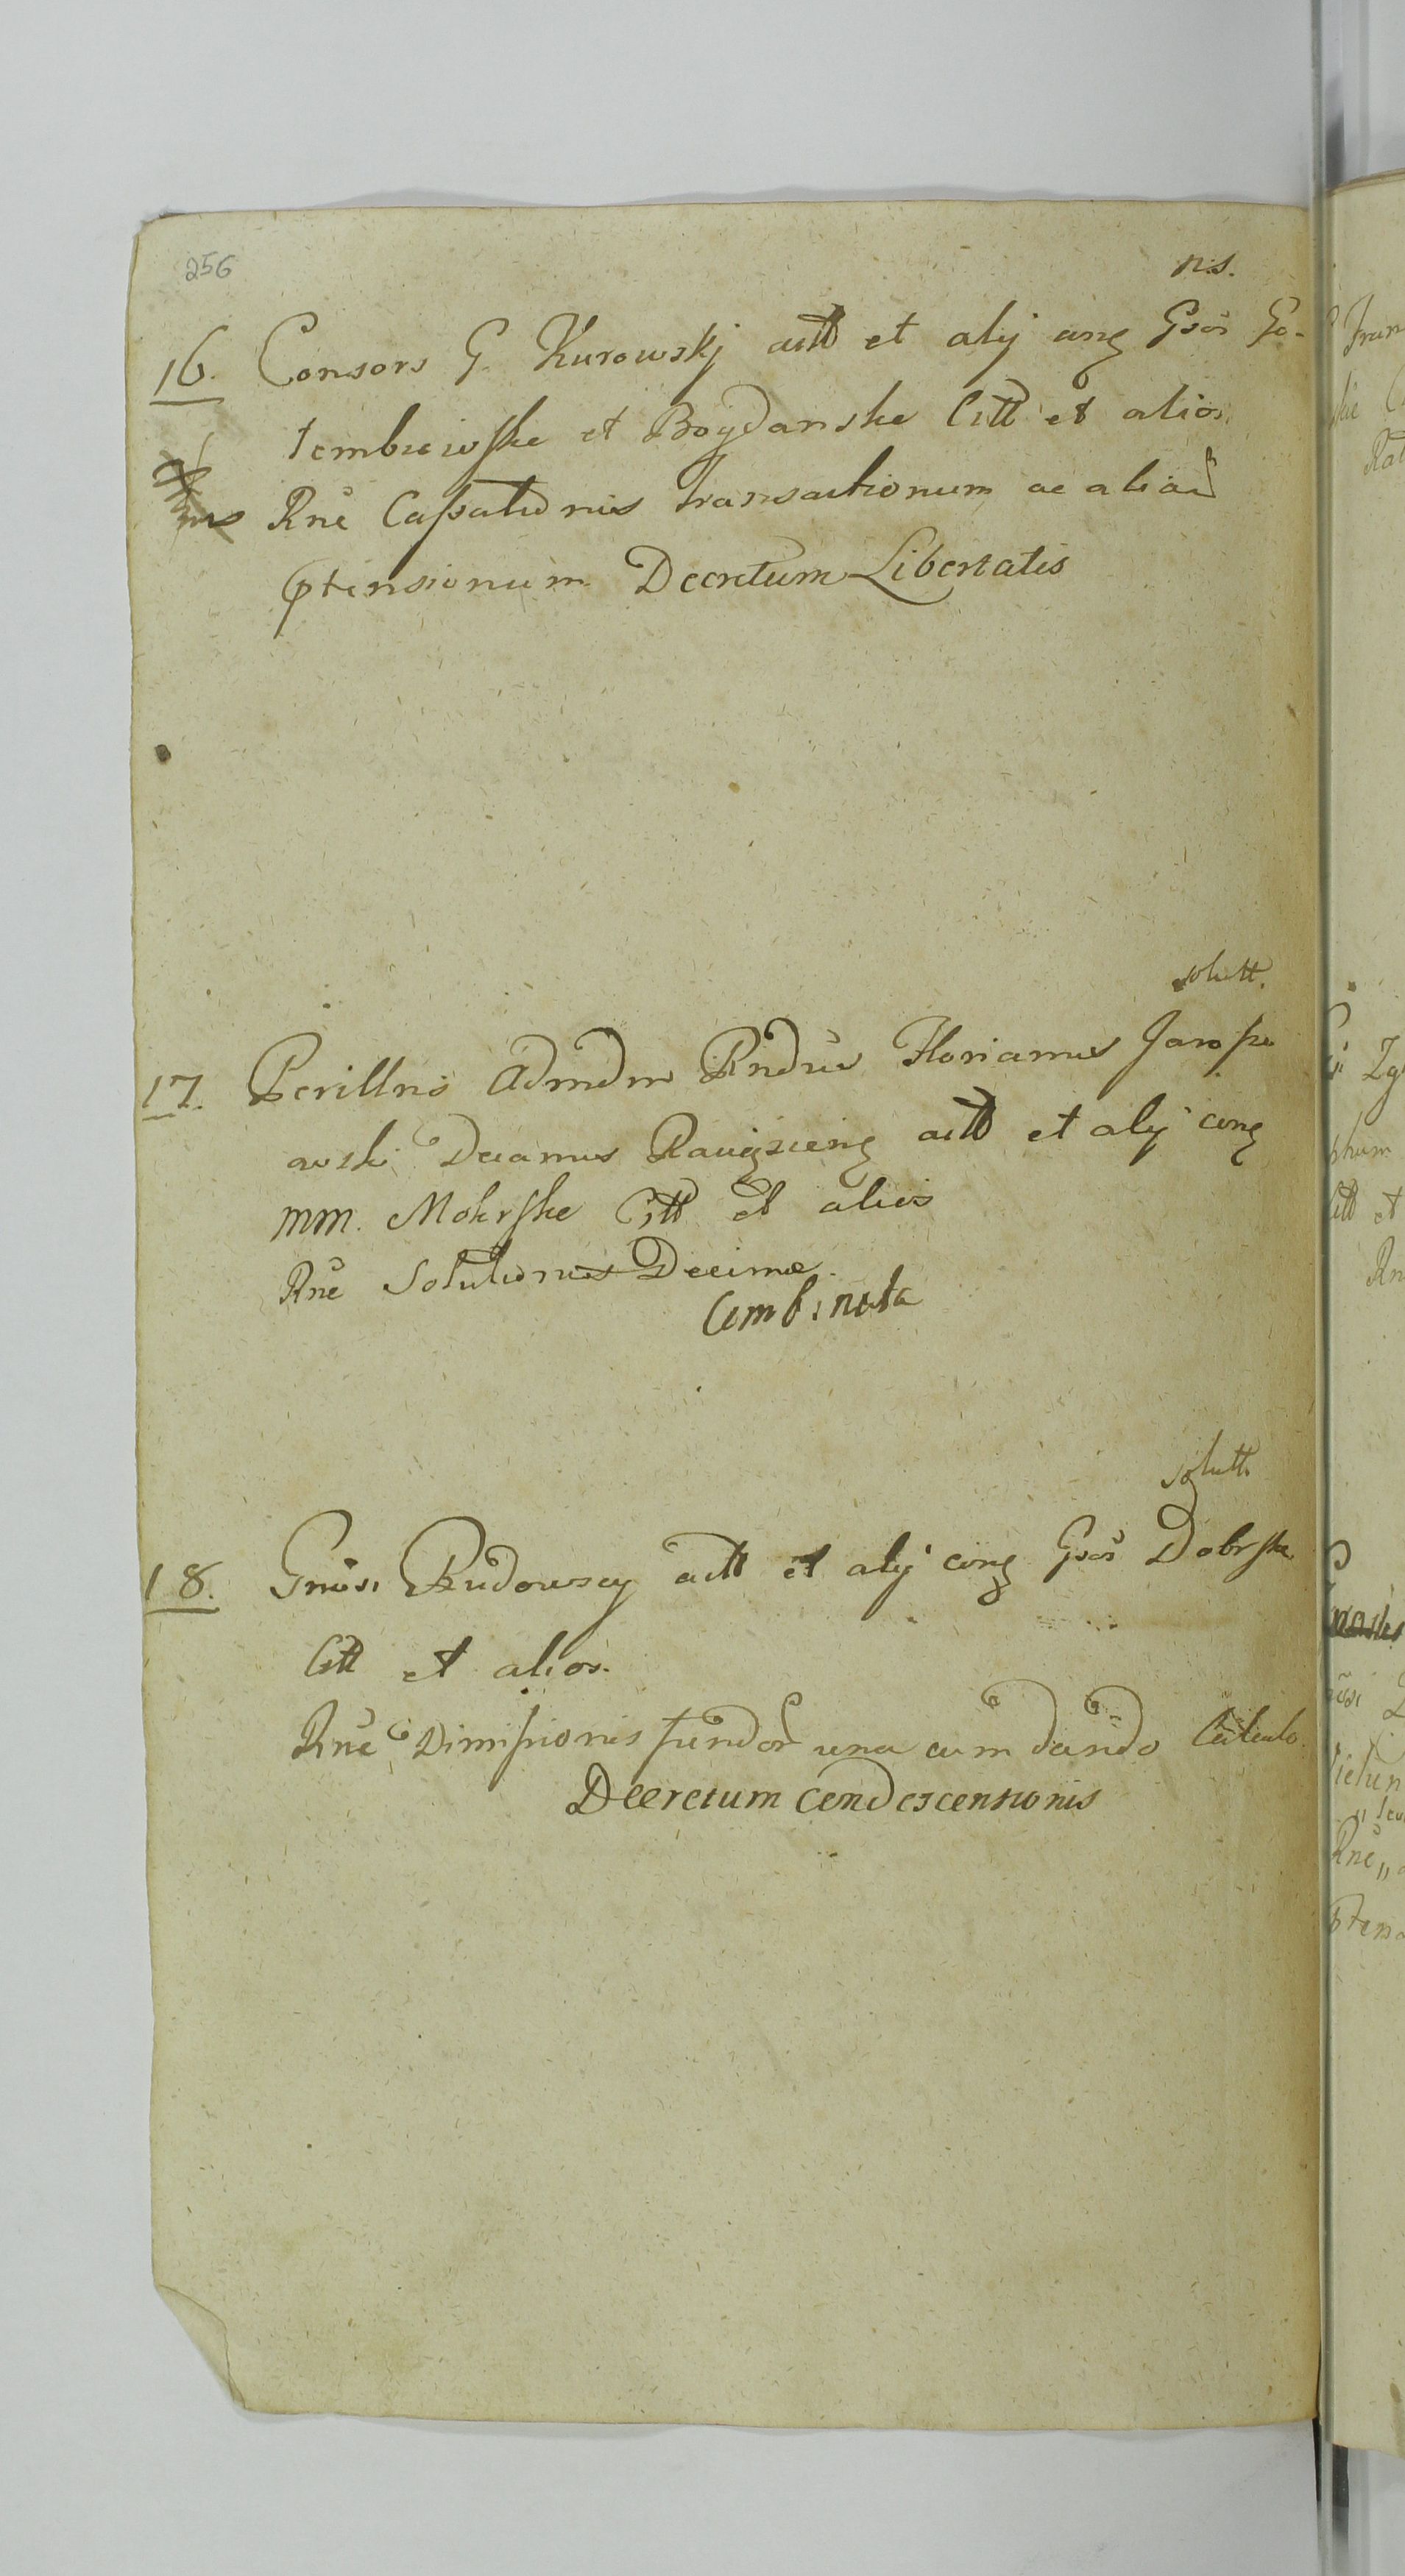 256
n.s.
16. Consors G. Kurowskj actt et alij cong Gsos Go-
tembiewske et Bogdanske Citt et alios.
Rne Cassationis Transactionum ac aliar
ptensionum Decretum Libertatis
solutt.
17. Perillris Admdm Rndus Florianus Jaross
awski Decanus Raugrieng actt et alij cong
MM. Mokrske Citt et alios
Rne Solutionis Decimæ.
Combinata
solutt.
18. Gnosi Rudowscy actt et alij cong Gsos Dobrske
Citt et alios.
Rne Dimissionis fundor una cum dando Calculo.
Decretum Condescensionis